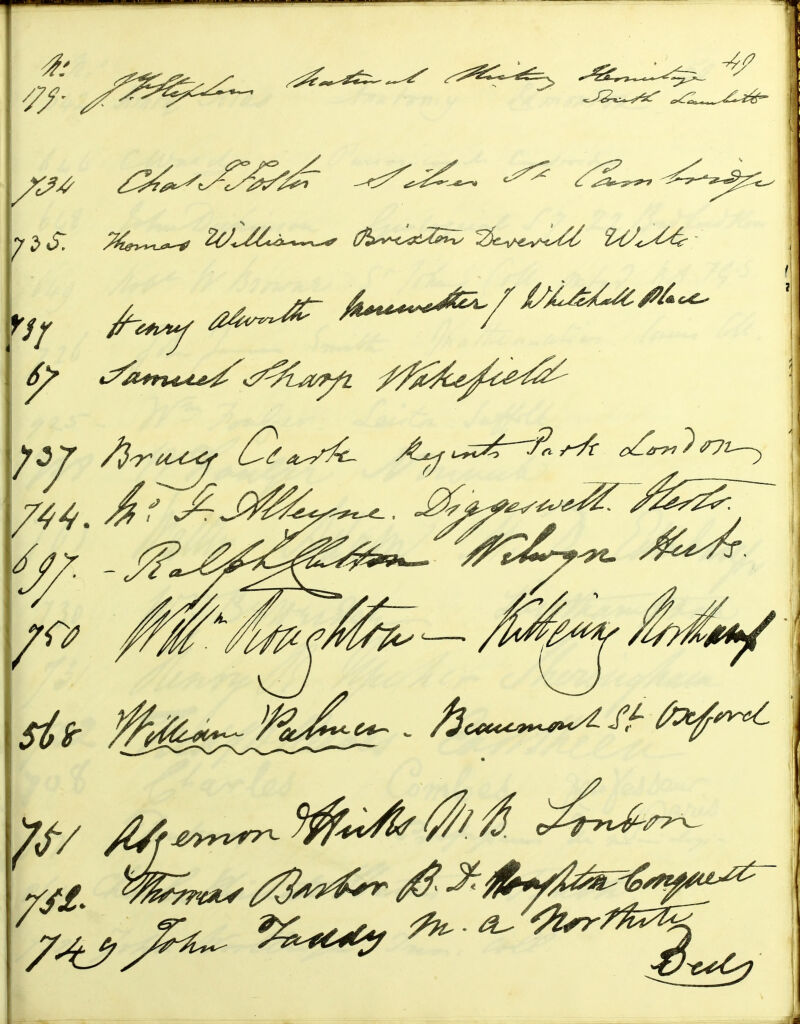 No. 49
179. J. F. Stephens Natural History Hermitage
South Lambeth
734 Chas F Foster Silver St Cambridge
735. Thomas Williams Brixton Deverill Wilts
Henry Alworth Merewether 7 Whitehall Place
67 Samuel Sharp Wakefield
737 Bracy Clark Regents Park London
744. F. Alleyne. Diggeswell. Herts.
697. - Ralph Clutton Welwyn Herts.
750 Willm. Roughton — Kettering Northamp
568 William Palmer - Beaumont St. Oxford
751 Algernon Hicks M. B. London
752. Thomas Barber B. D. Houghton Conquest
749 John Taddy M. A Northill
Beds